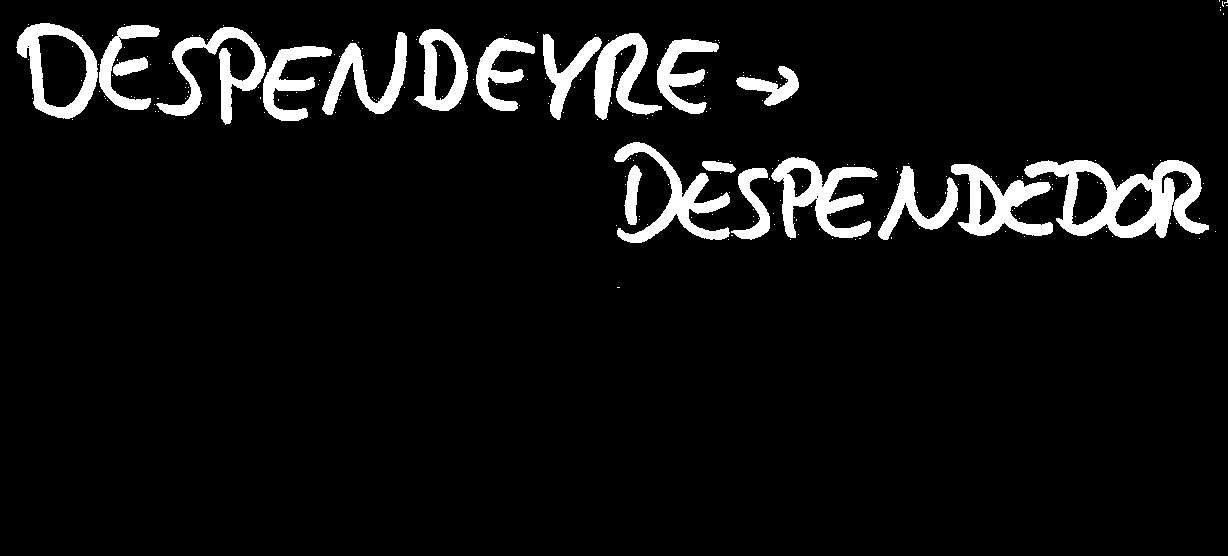 DESPENDEYRE →
DESPENDEDOR